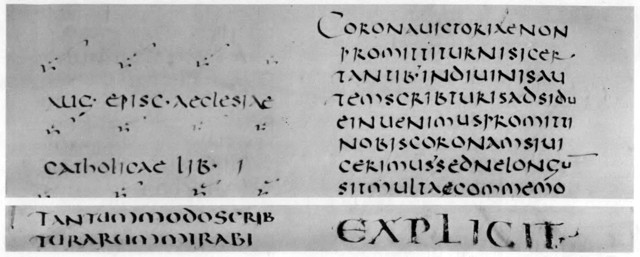 AUG· EPISC· AECLESIAE
CATHOLICAE LIB· I
CORONAUICTORIAENON
PROMITTITURNISICER
TANTIB·INDIUINISAU
TEMSCRIBTURISADSIDU
EINUENIMUSPROMITTI
NOBISCORONAMSIUI
CERIMUS·SEDNELONGŪ
SITMULTAECOMMEMO
TANTUMMODOSCRIB
TURARUMMIRABI
EXPLICIT·